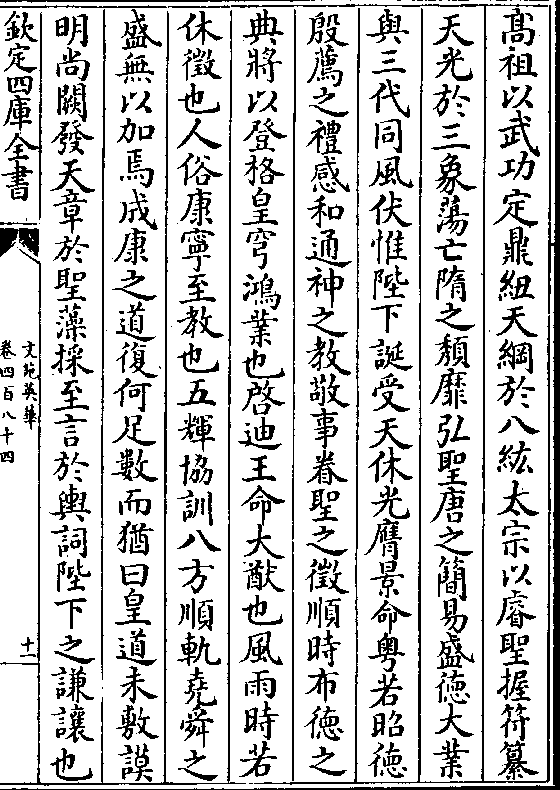 高祖以武功定鼎紐天綱於八紘太宗以睿聖握符纂
天光於三象蕩亡隋之頽靡弘聖唐之簡易盛德大業
與三代同風伏惟陛下誕受天休光膺景命粤若昭德
殷薦之禮感和通神之教敬事眷聖之徵順時布德之
典將以登格皇穹鴻業也啓迪王命大猷也風雨時若
休徵也人俗康寧至教也五輝協訓八方順軌堯舜之
盛無以加焉成康之道復何足數而猶曰皇道未敷謨
明尚闕發天章於聖藻採至言於輿詞陛下之謙讓也
欽定四庫全書
文苑英華
卷四百八十四
十一